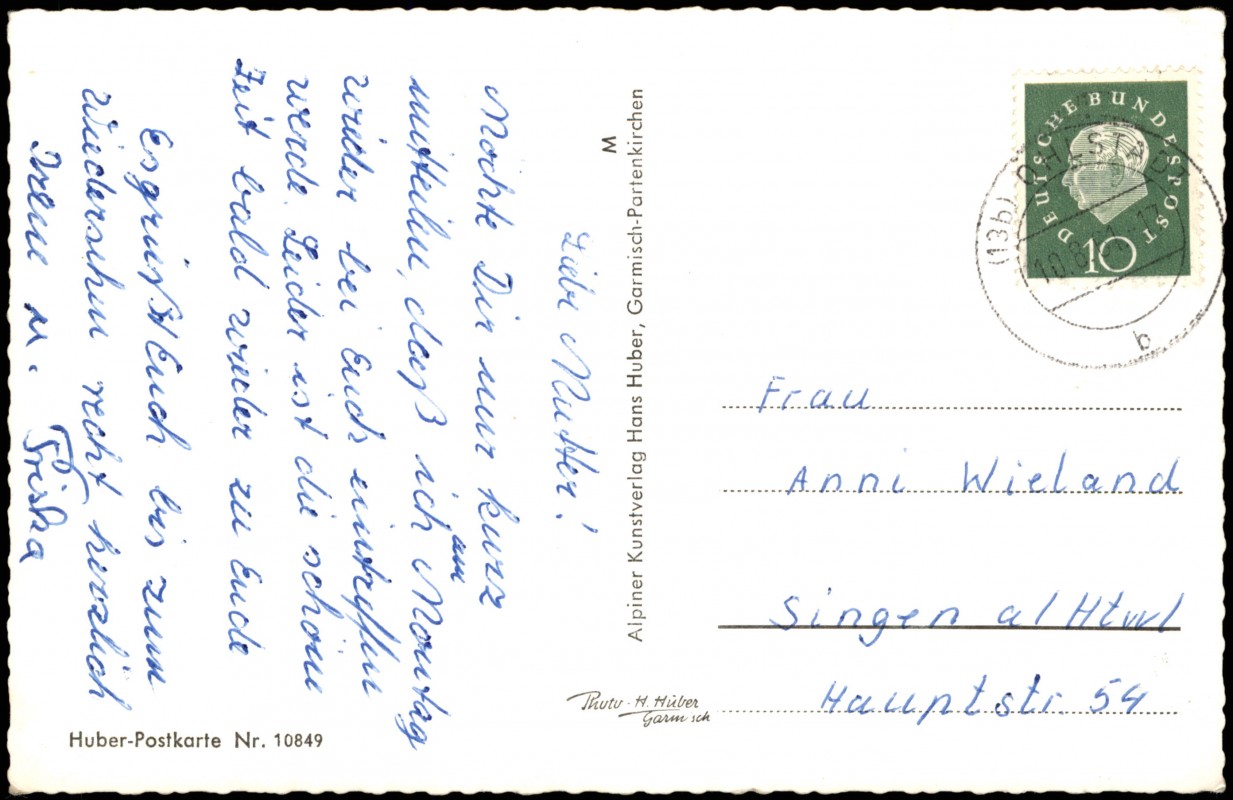 Liebe Mutter!
Möchte Dir nur kurz
mitteilen, daß ich am Montag
wieder bei Euch eintreffen
werde. Leider ist die schöne
Zeit bald wieder zu Ende
Es grüßt Euch bis zum
Wiedersehn recht herzlich
Irene u. Priska
Huber-Postkarte Nr. 10849
M
Alpiner Kunstverlag Hans Huber, Garmisch-Partenkirchen
Photo-H. Huber
Garmisch
DEUTSCHE BUNDESPOST
10
(13b) OHLSTADT
10.8.61-17
b
Frau
Anni Wieland
Singen a/Htwl
Hauptstr. 54